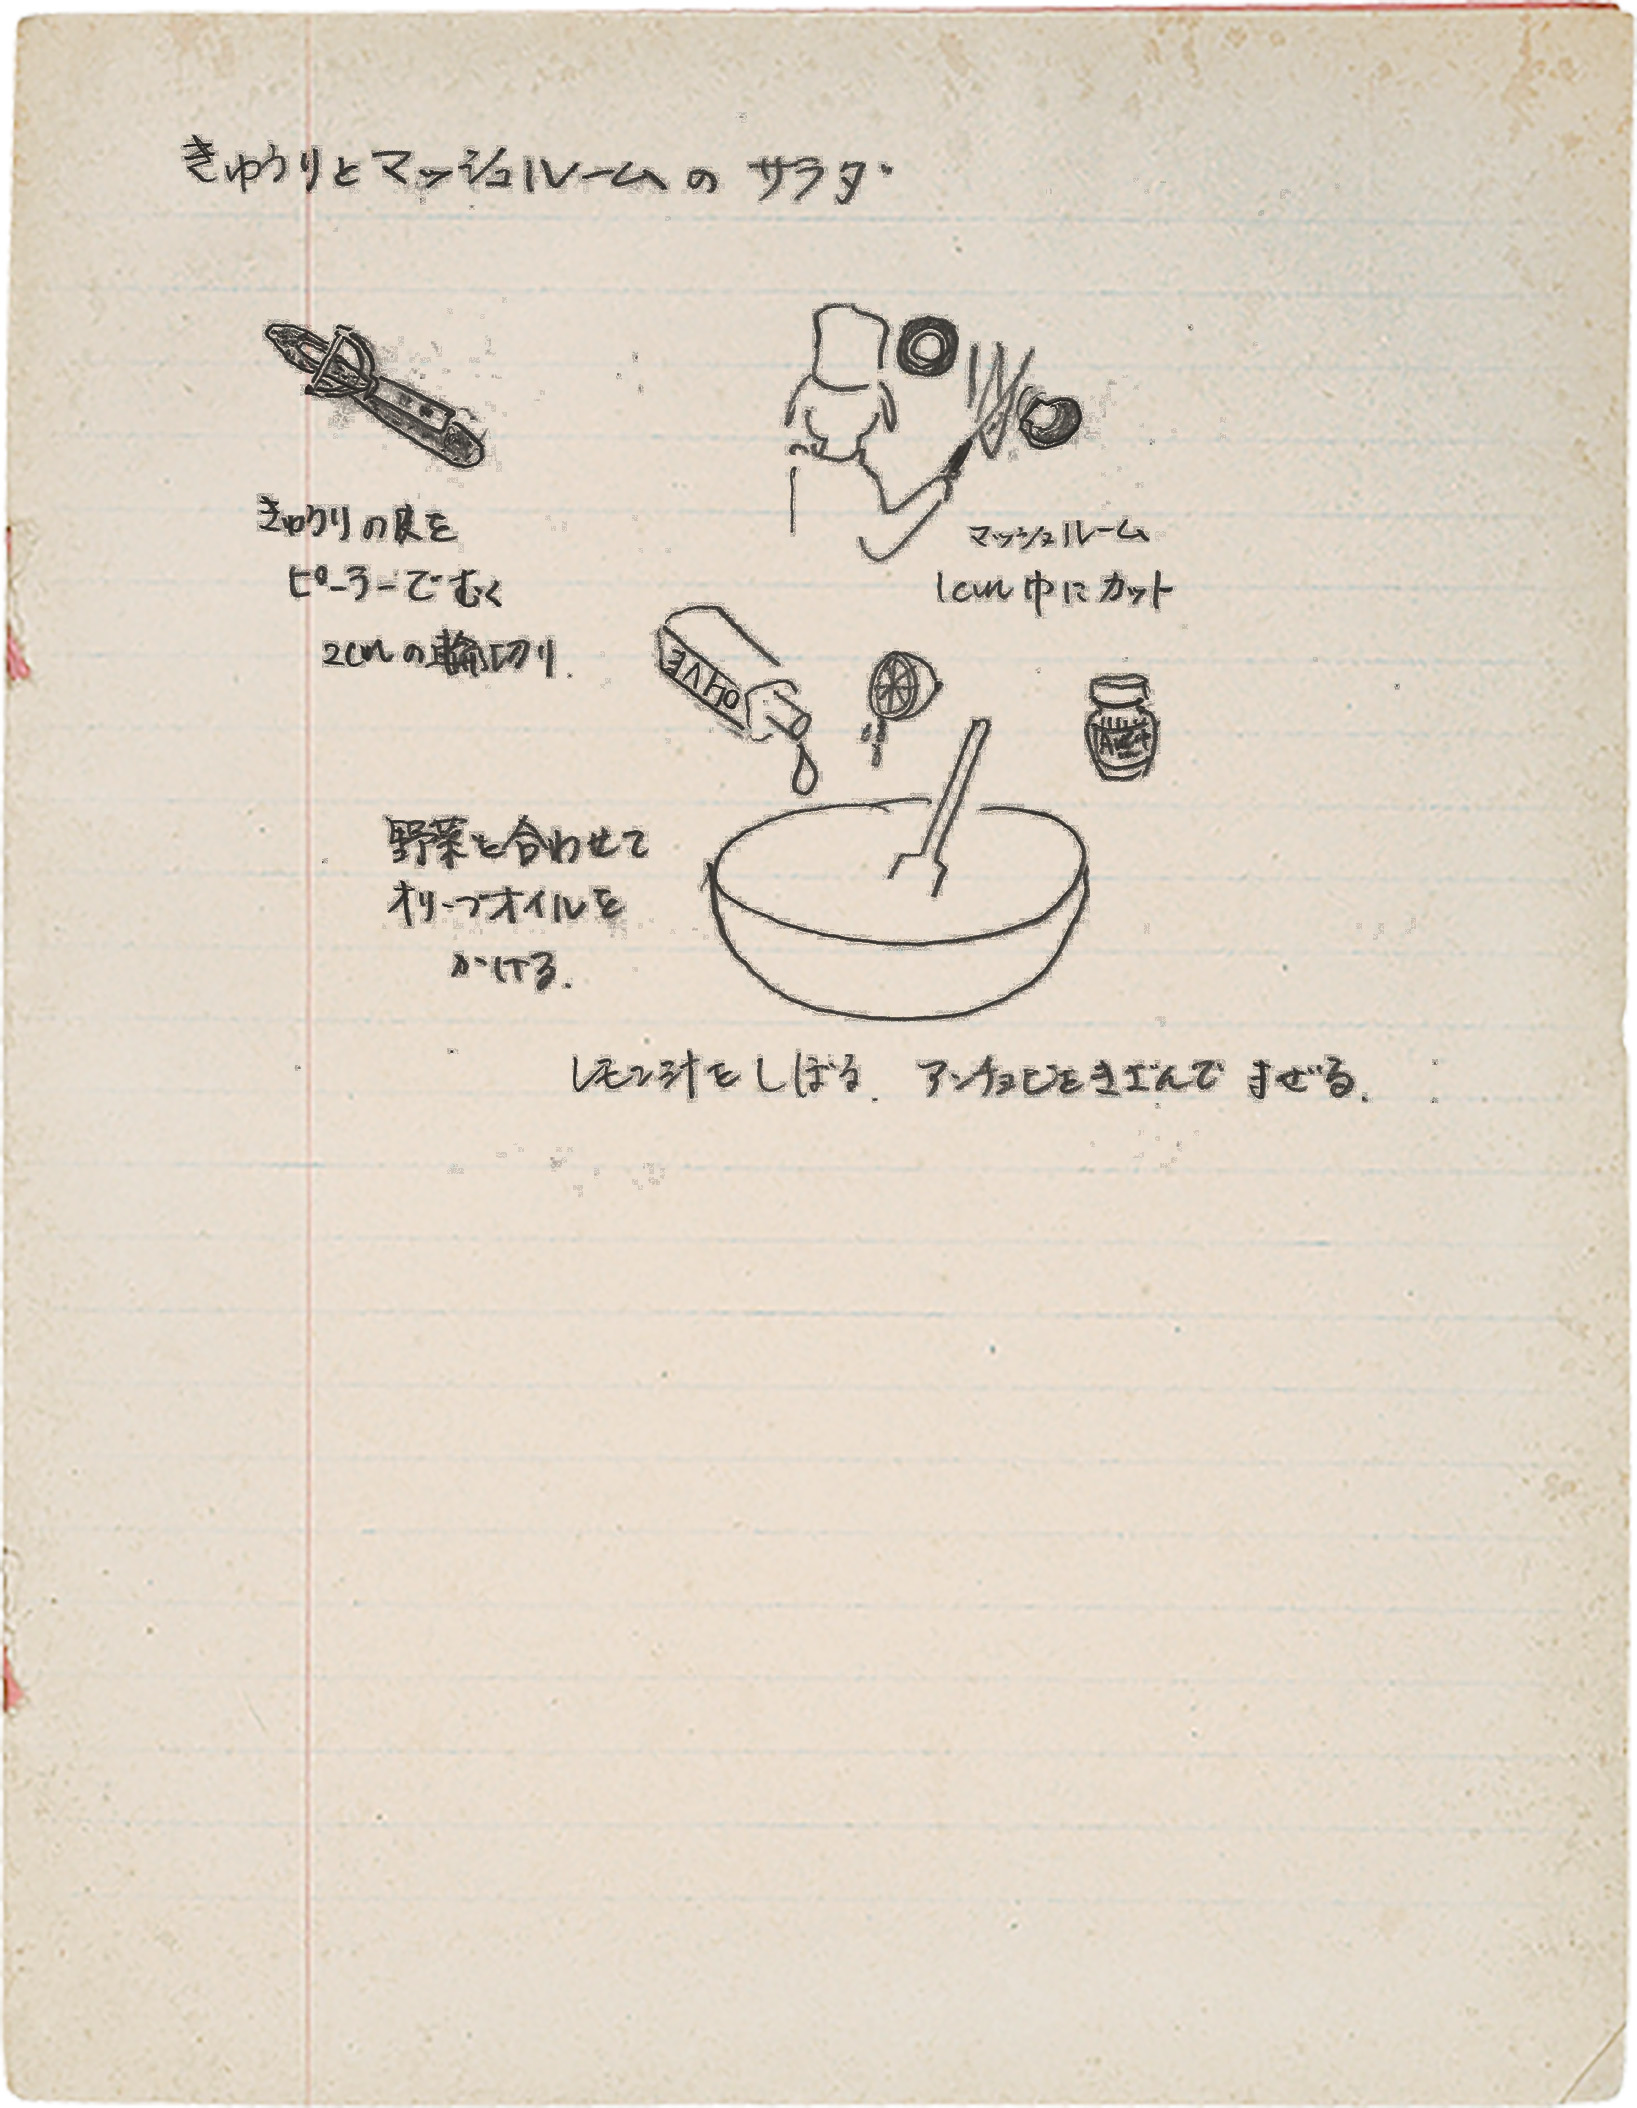 きゅうりとマッシュルームの サラダ
きゅうりの皮を
ピーラーでむく
2cmの輪切り.
マッシュルーム
1cm巾にカット
OLIVE
野菜を合わせて
オリーブオイルを
かける.
レモン汁をしぼる. アンチョビをきざんで まぜる.